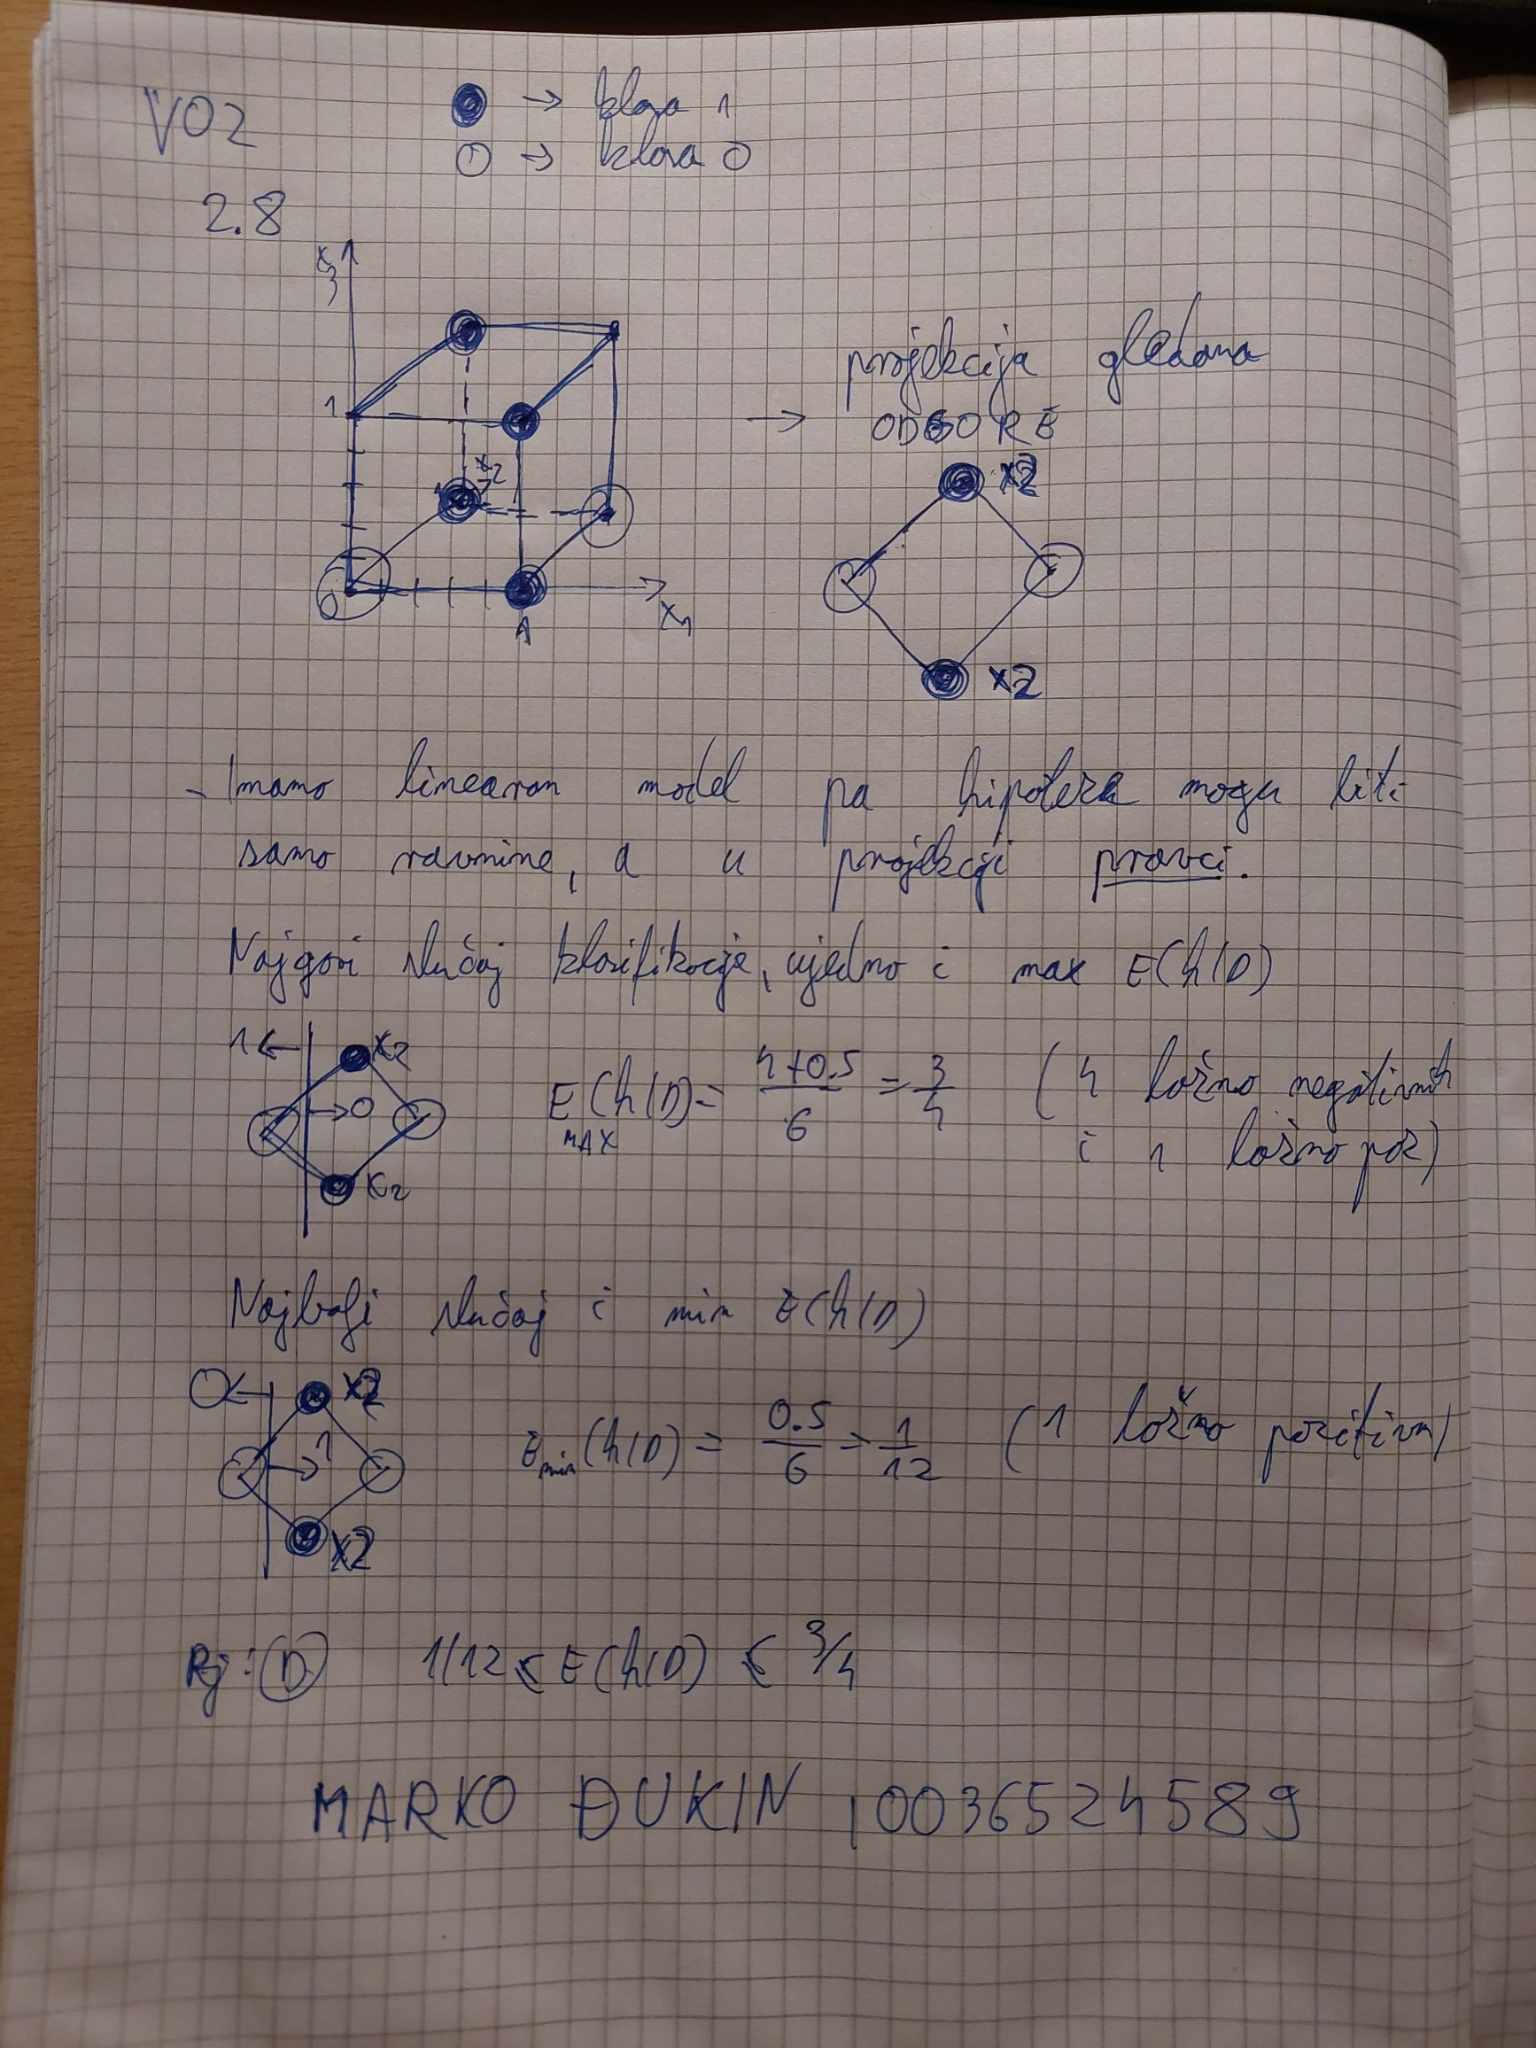 V02
● → klasa 1
○ → klasa 0
2.8
x3
1
x2
0
1
x1
→ projekcija gledana
ODGORE
x2
x2
- Imamo linearan model pa hipoteze mogu biti
samo ravnine, a u projekciji pravci.
Najgori slučaj klasifikacije, ujedno i max E(h|D)
1← x2
→0
x2
E(h|D) = (4+0.5)/6 = 3/4 (4 lažno negativnih
MAX
i 1 lažno poz)
Najbolji slučaj i min E(h|D)
0← x2
→1
x2
Emin(h|D) = 0.5/6 = 1/12 (1 lažno pozitivni)
Rj: (D) 1/12 ≤ E(h|D) ≤ 3/4
MARKO ĐUKIN, 0036524589